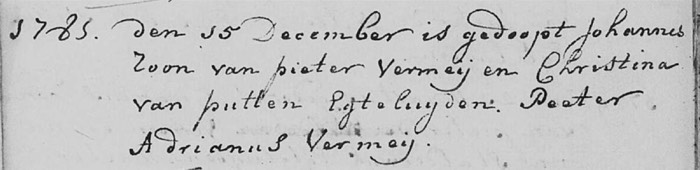 1781. den 15 December is gedoopt Johannes
Zoon van pieter Vermeij en Christina
van putten Egteluyden. Peeter
Adrianus Vermeij.